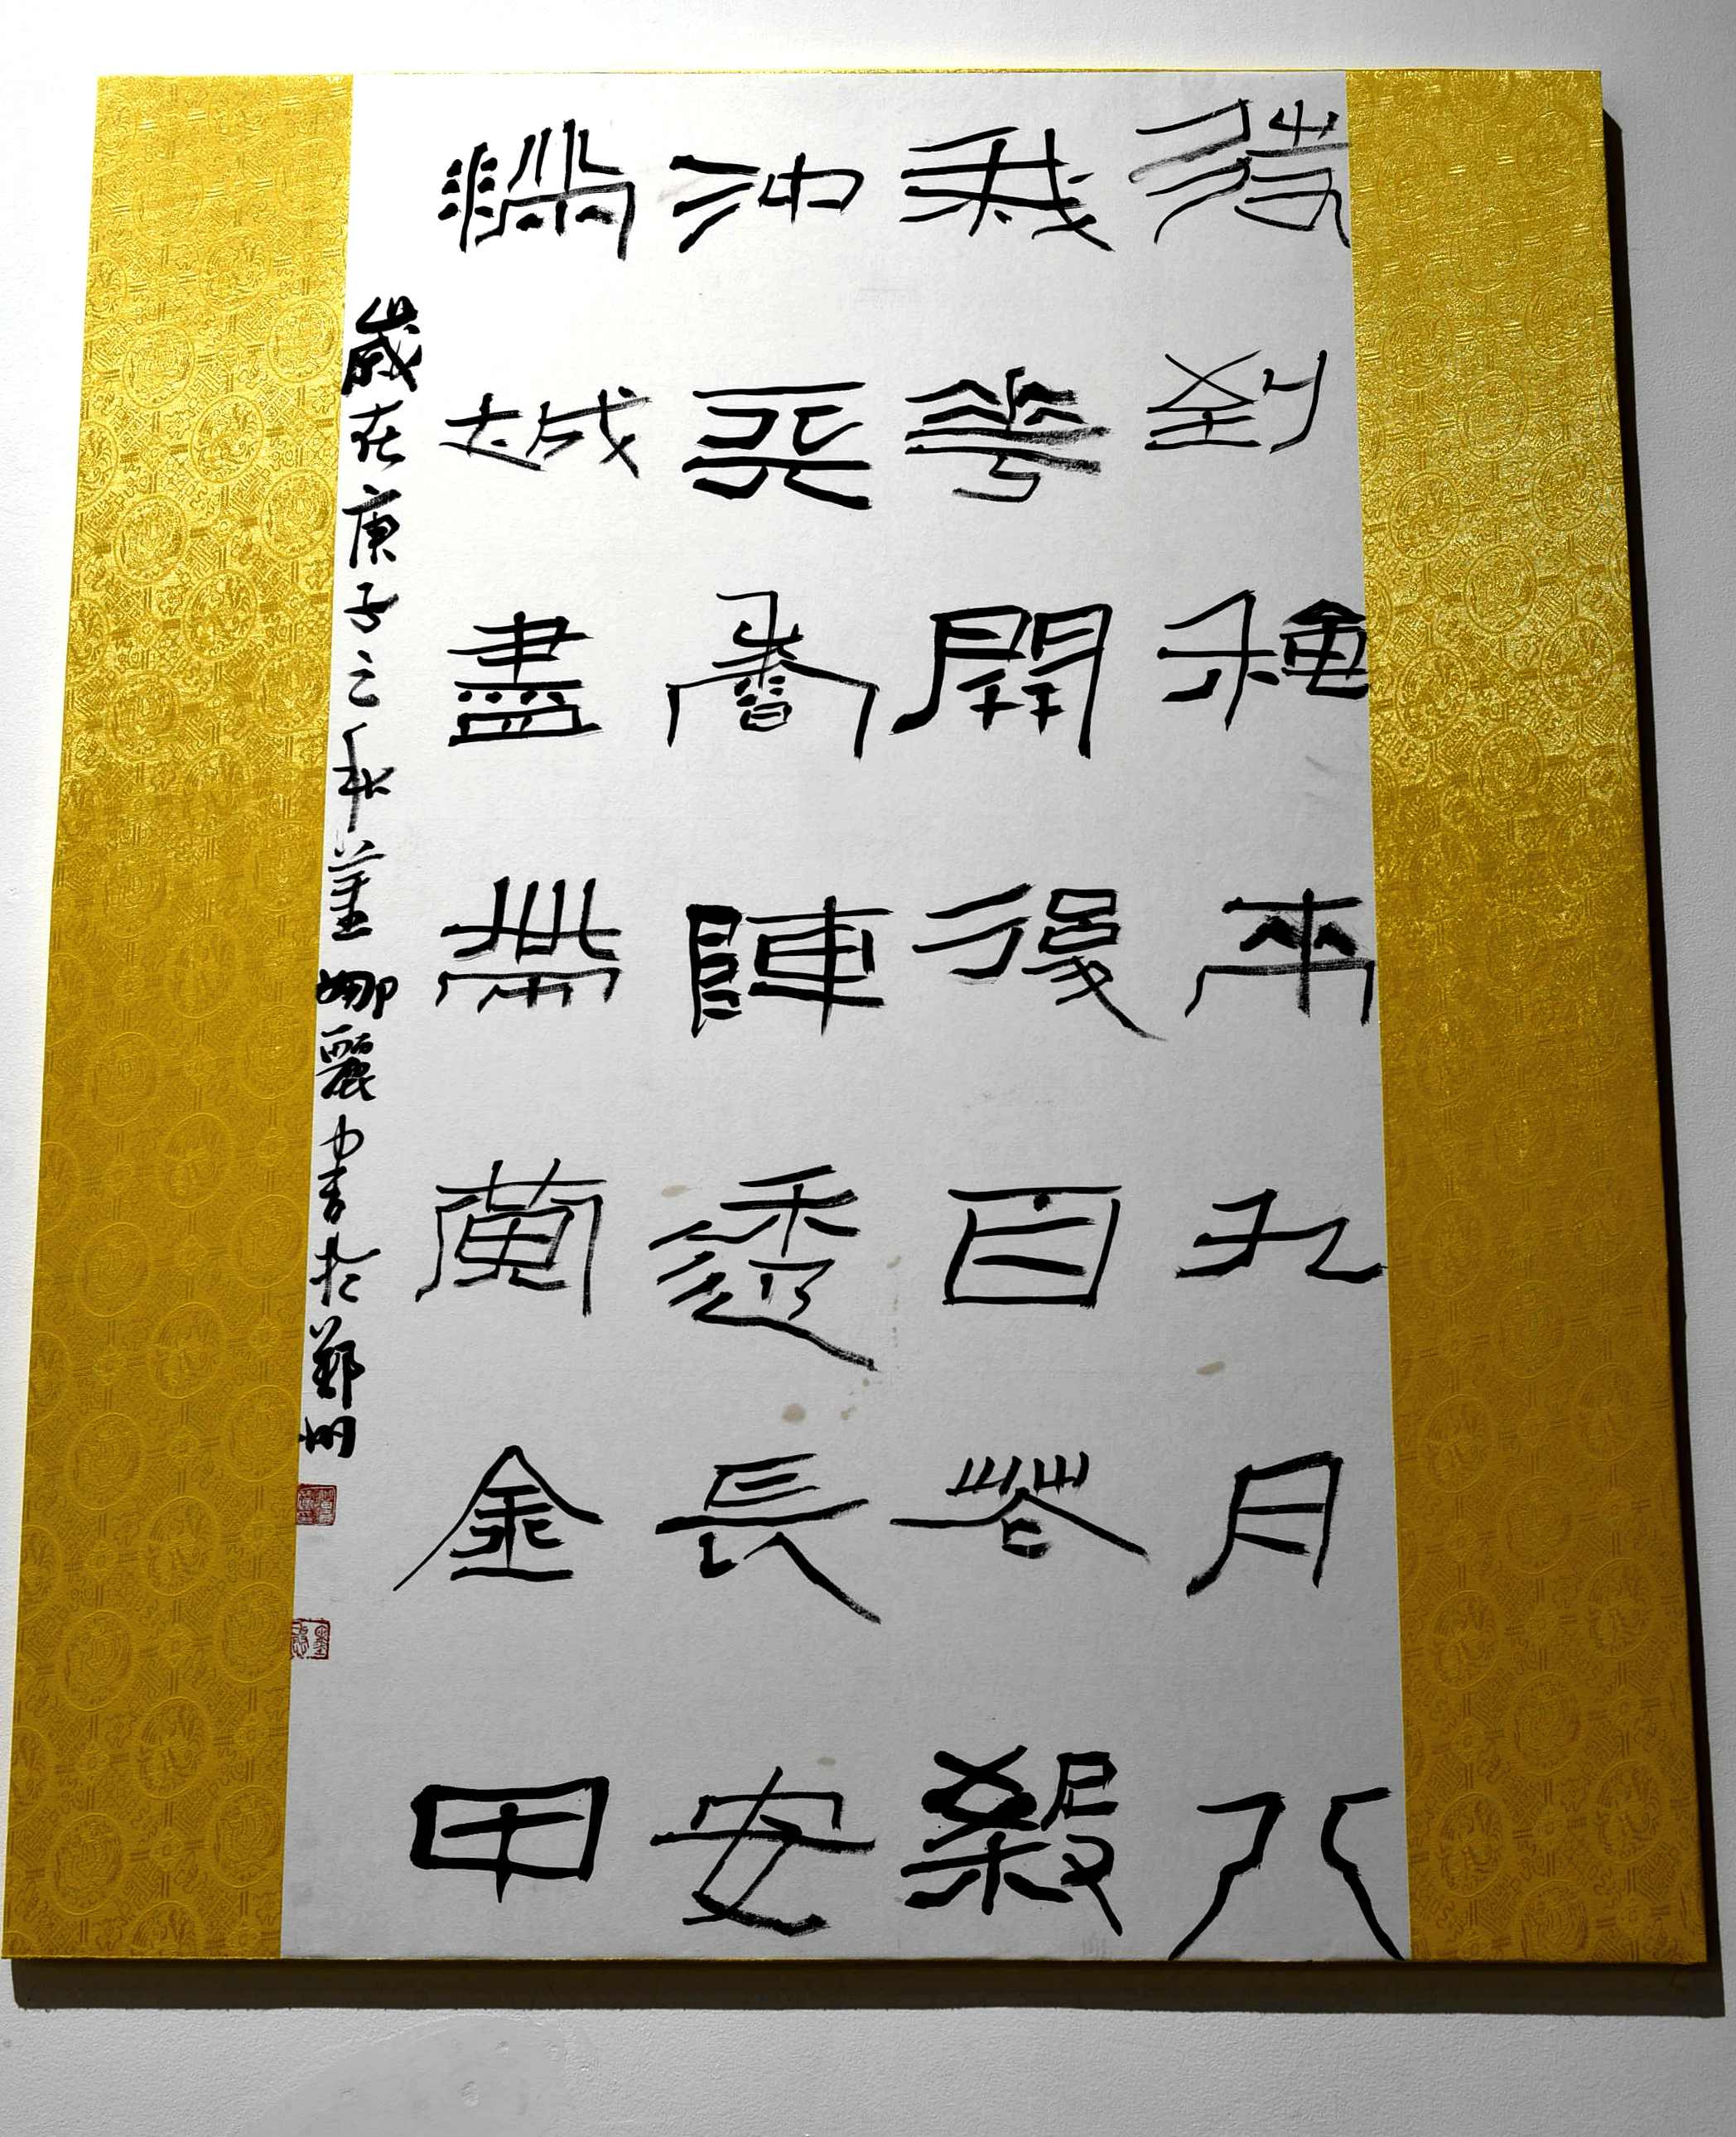 待到穐來九月八
我華開後百花殺
沖天香陣透長安
滿城盡帶黃金甲
歲在庚子之秋董娜麗書於鄭州